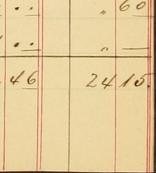 .. „ 60
.. „ —
46 2415.